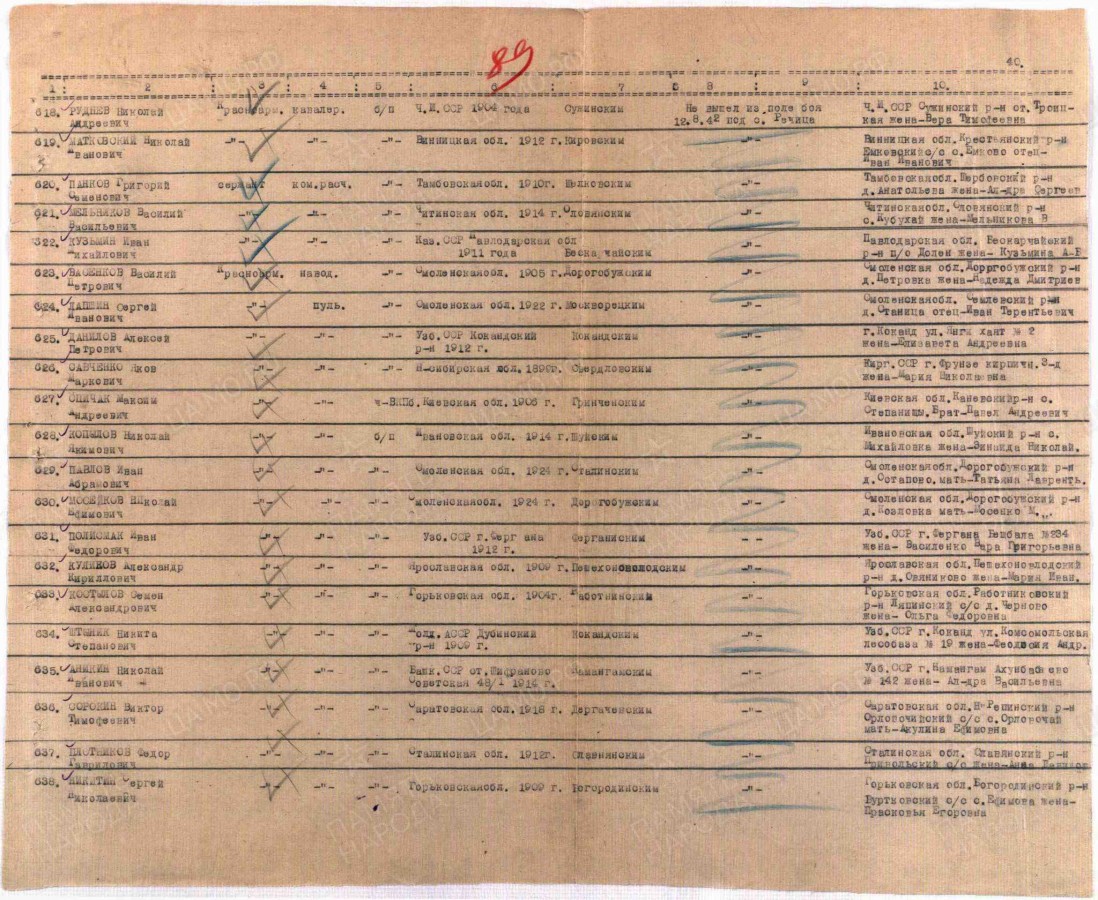 89
40.
1 : 2 : 3 : 4 : 5 : 6 : 7 : 8 : 9 : 10.
618. РУДНЕВ Николай Красноарм. кавалер. б/п Ч.И.ССР 1904 года Сунжинским Не вышел из поля боя Ч.И.ССР Сунжинский р-н ст. Троиц-
Андреевич 12.8.42 под с. Речица кая жена-Вера Тимофеевна
619. МАТКОВСКИЙ Николай -"- -"- -"- Винницкая обл. 1912 г. Кировским -"- Винницкая обл. Крестьянский р-н
Иванович Емковский с/с с. Емково отец-
Иван Иванович
620. ПАНКОВ Григорий сержант ком.расч. -"- Тамбовская обл. 1910г. Щелковским -"- Тамбовская обл. Шербовский р-н
Семенович д. Анатольева жена-Ал-дра Сергеев
621. МЕЛЬНИКОВ Василий -"- -"- -"- Читинская обл. 1914 г. Оловянским -"- Читинская обл. Оловянский р-н
Васильевич с. Кубухай жена-Мельникова В
322. КУЗЬМИН Иван -"- -"- -"- Каз.ССР Павлодарская обл -"- Павлодарская обл. Бескарчайский
Михайлович 1911 года Бескарчайским р-н п/о Долен жена- Кузьмина А-Е
623. ВАСЕНКОВ Василий Красноарм. навод. -"- Смоленская обл. 1905 г. Дорогобужским -"- Смоленская обл. Дорргобужский р-н
Петрович д. Петровка жена-Надежда Дмитриев
624. ЛАПШИН Сергей -"- пуль. -"- Смоленская обл. 1922 г. Москворецким -"- Смоленская обл. Семлевский р-н
Иванович д. Станица отец-Иван Терентьевич
625. ДАНИЛОВ Алексей -"- -"- -"- Узб.ССР Кокандский Кокандским -"- г. Коканд ул. Янги хаят № 2
Петрович р-н 1912 г. жена-Елизавета Андреевна
626. САВЧЕНКО Яков -"- -"- -"- Н-сибирская обл. 1899г. Свердловским -"- Кирг.ССР г. Фрунзе кирпичн. З-д
Маркович жена-Мария Николаевна
627. СПИЧАК Максим -"- -"- ч-ВКПб. Киевская обл. 1906 г. Гринченским -"- Киевская обл. Каневский р-н с.
Андреевич Степанищы. Брат-Павел Андреевич
628. КОПЫЛОВ Николай -"- -"- б/п Ивановская обл. 1914 г. Шуйским -"- Ивановская обл. Шуйский р-н с.
Якимович Михайловка жена-Зинаида Николай.
629. ПАВЛОВ Иван -"- -"- -"- Смоленская обл. 1924 г. Сталинским -"- Смоленская обл. Дорогобужский р-н
Абрамович д. Остапово. мать-Татьяна Лаврентъ.
630. МОСЕЙКОВ Николай -"- -"- -"- Смоленская обл. 1924 г. Дорогобужским -"- Смоленская обл. Дорогобужский р-н
Ефимович д. Козловка мать-Мосенко М...
631. ПОЛИСМАК Иван -"- -"- -"- Узб.ССР г. Фергана Ферганиским -"- Узб.ССР г. Фергана Бешбала №234
Федорович 1912 г. жена- Василенко Вара Григорьевна
632. КУЛИКОВ Александр -"- -"- -"- Ярославская обл. 1909 г. Пешехоноволодским -"- Ярославская обл. Пешехоноволодский
Кириллович р-н д. Овяниково жена-Мария Иван.
633. КОСТЫЛОВ Семен -"- -"- -"- Горьковская обл. 1904г. Работнинским -"- Горьковская обл. Работниковский
Александрович р-н Ляпинский с/с д. Черново
жена- Ольга Федоровна
634. ШТЕНИН Никита -"- -"- -"- Молд. АССР Дубинский Кокандским -"- Узб.ССР г. Коканд ул. Комсомольская
Степанович р-н 1909 г. лесобаза № 19 жена-Феодосия Андр.
635. АНИКИН Николай -"- -"- -"- Башк.ССР ст. Шафраново Намангамским -"- Узб.ССР г. Намангам Ахунбабаево
Иванович Советская 48/1 1914 г. № 142 жена- Ал-дра Васильевна
636. СОРОКИН Виктор -"- -"- -"- Саратовская обл. 1918 г. Дергачевским -"- Саратовская обл. Н-Репинский р-н
Тимофеевич Орловочийский с/с с. Орловочай
мать-Акулина Ефимовна
637. ПЛОТНИКОВ Федор -"- -"- -"- Сталинская обл. 1912г. Славянским -"- Сталинская обл. Славянский р-н
Гаврилович Привольский с/с жена-Анна
638. НИКИТИН Сергей -"- -"- -"- Горьковская обл. 1909 г. Богородинским -"- Горьковская обл. Богородинский р-н
Николаевич Буртковский с/с с. Ефимова жена-
Прасковья Егоровна